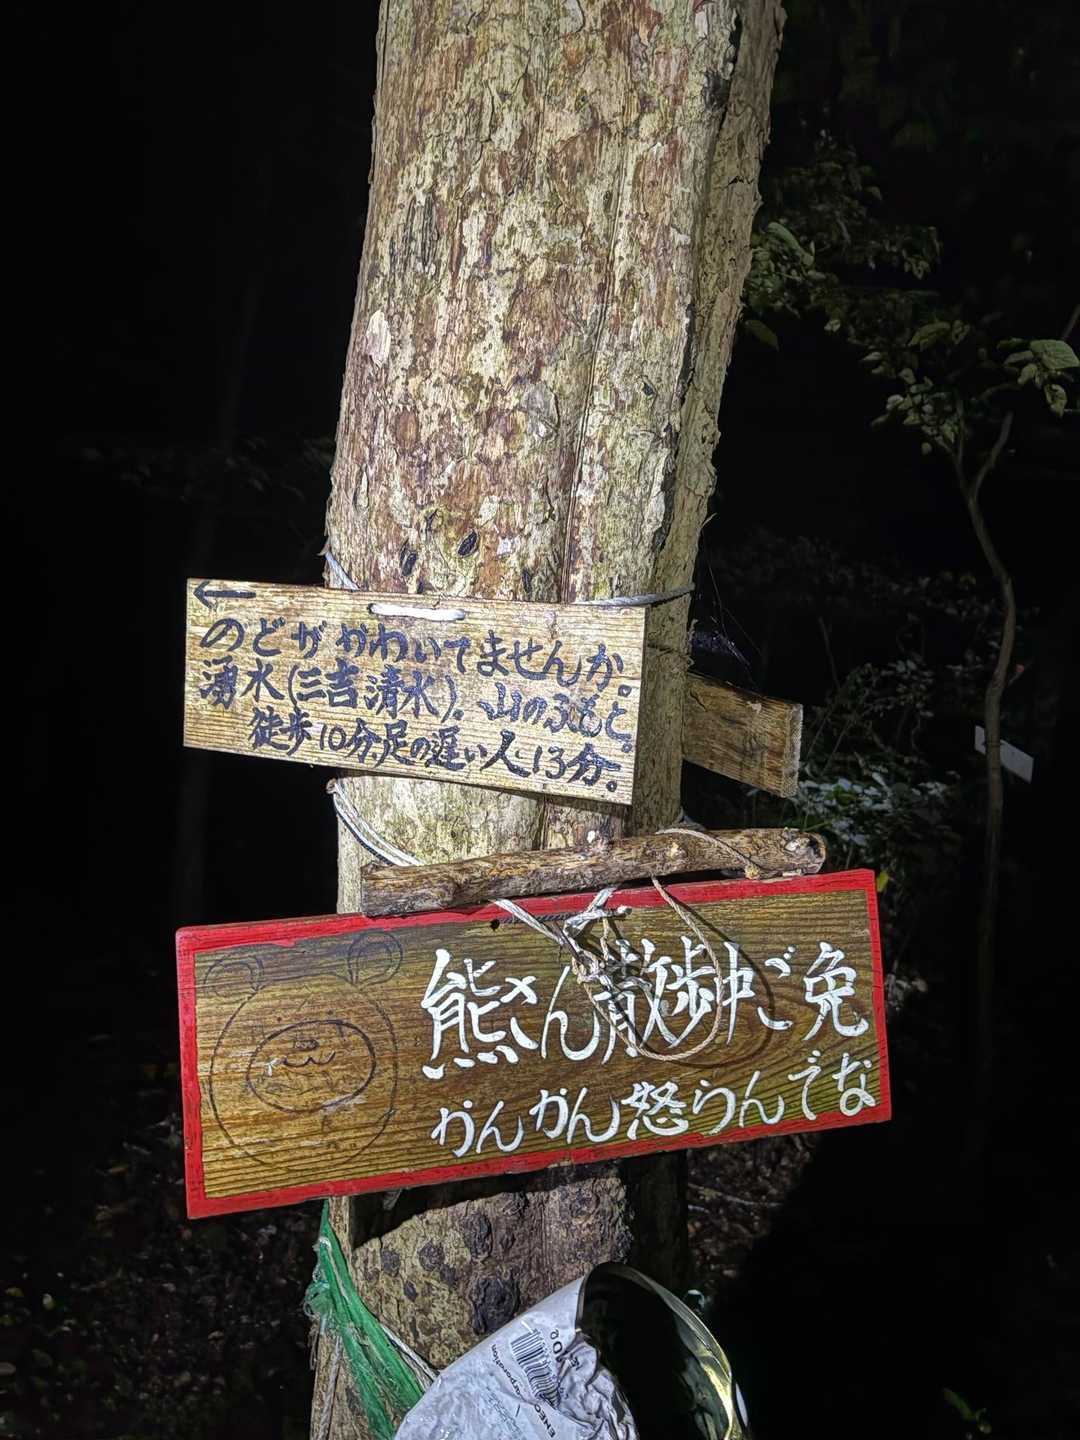 ←
のどがかわいてませんか。
湧水(三吉清水)。山のふもと。
徒歩10分、足の遅い人13分。
熊さん散歩中ご免
かんかん怒らんでな
ENEO
orporation